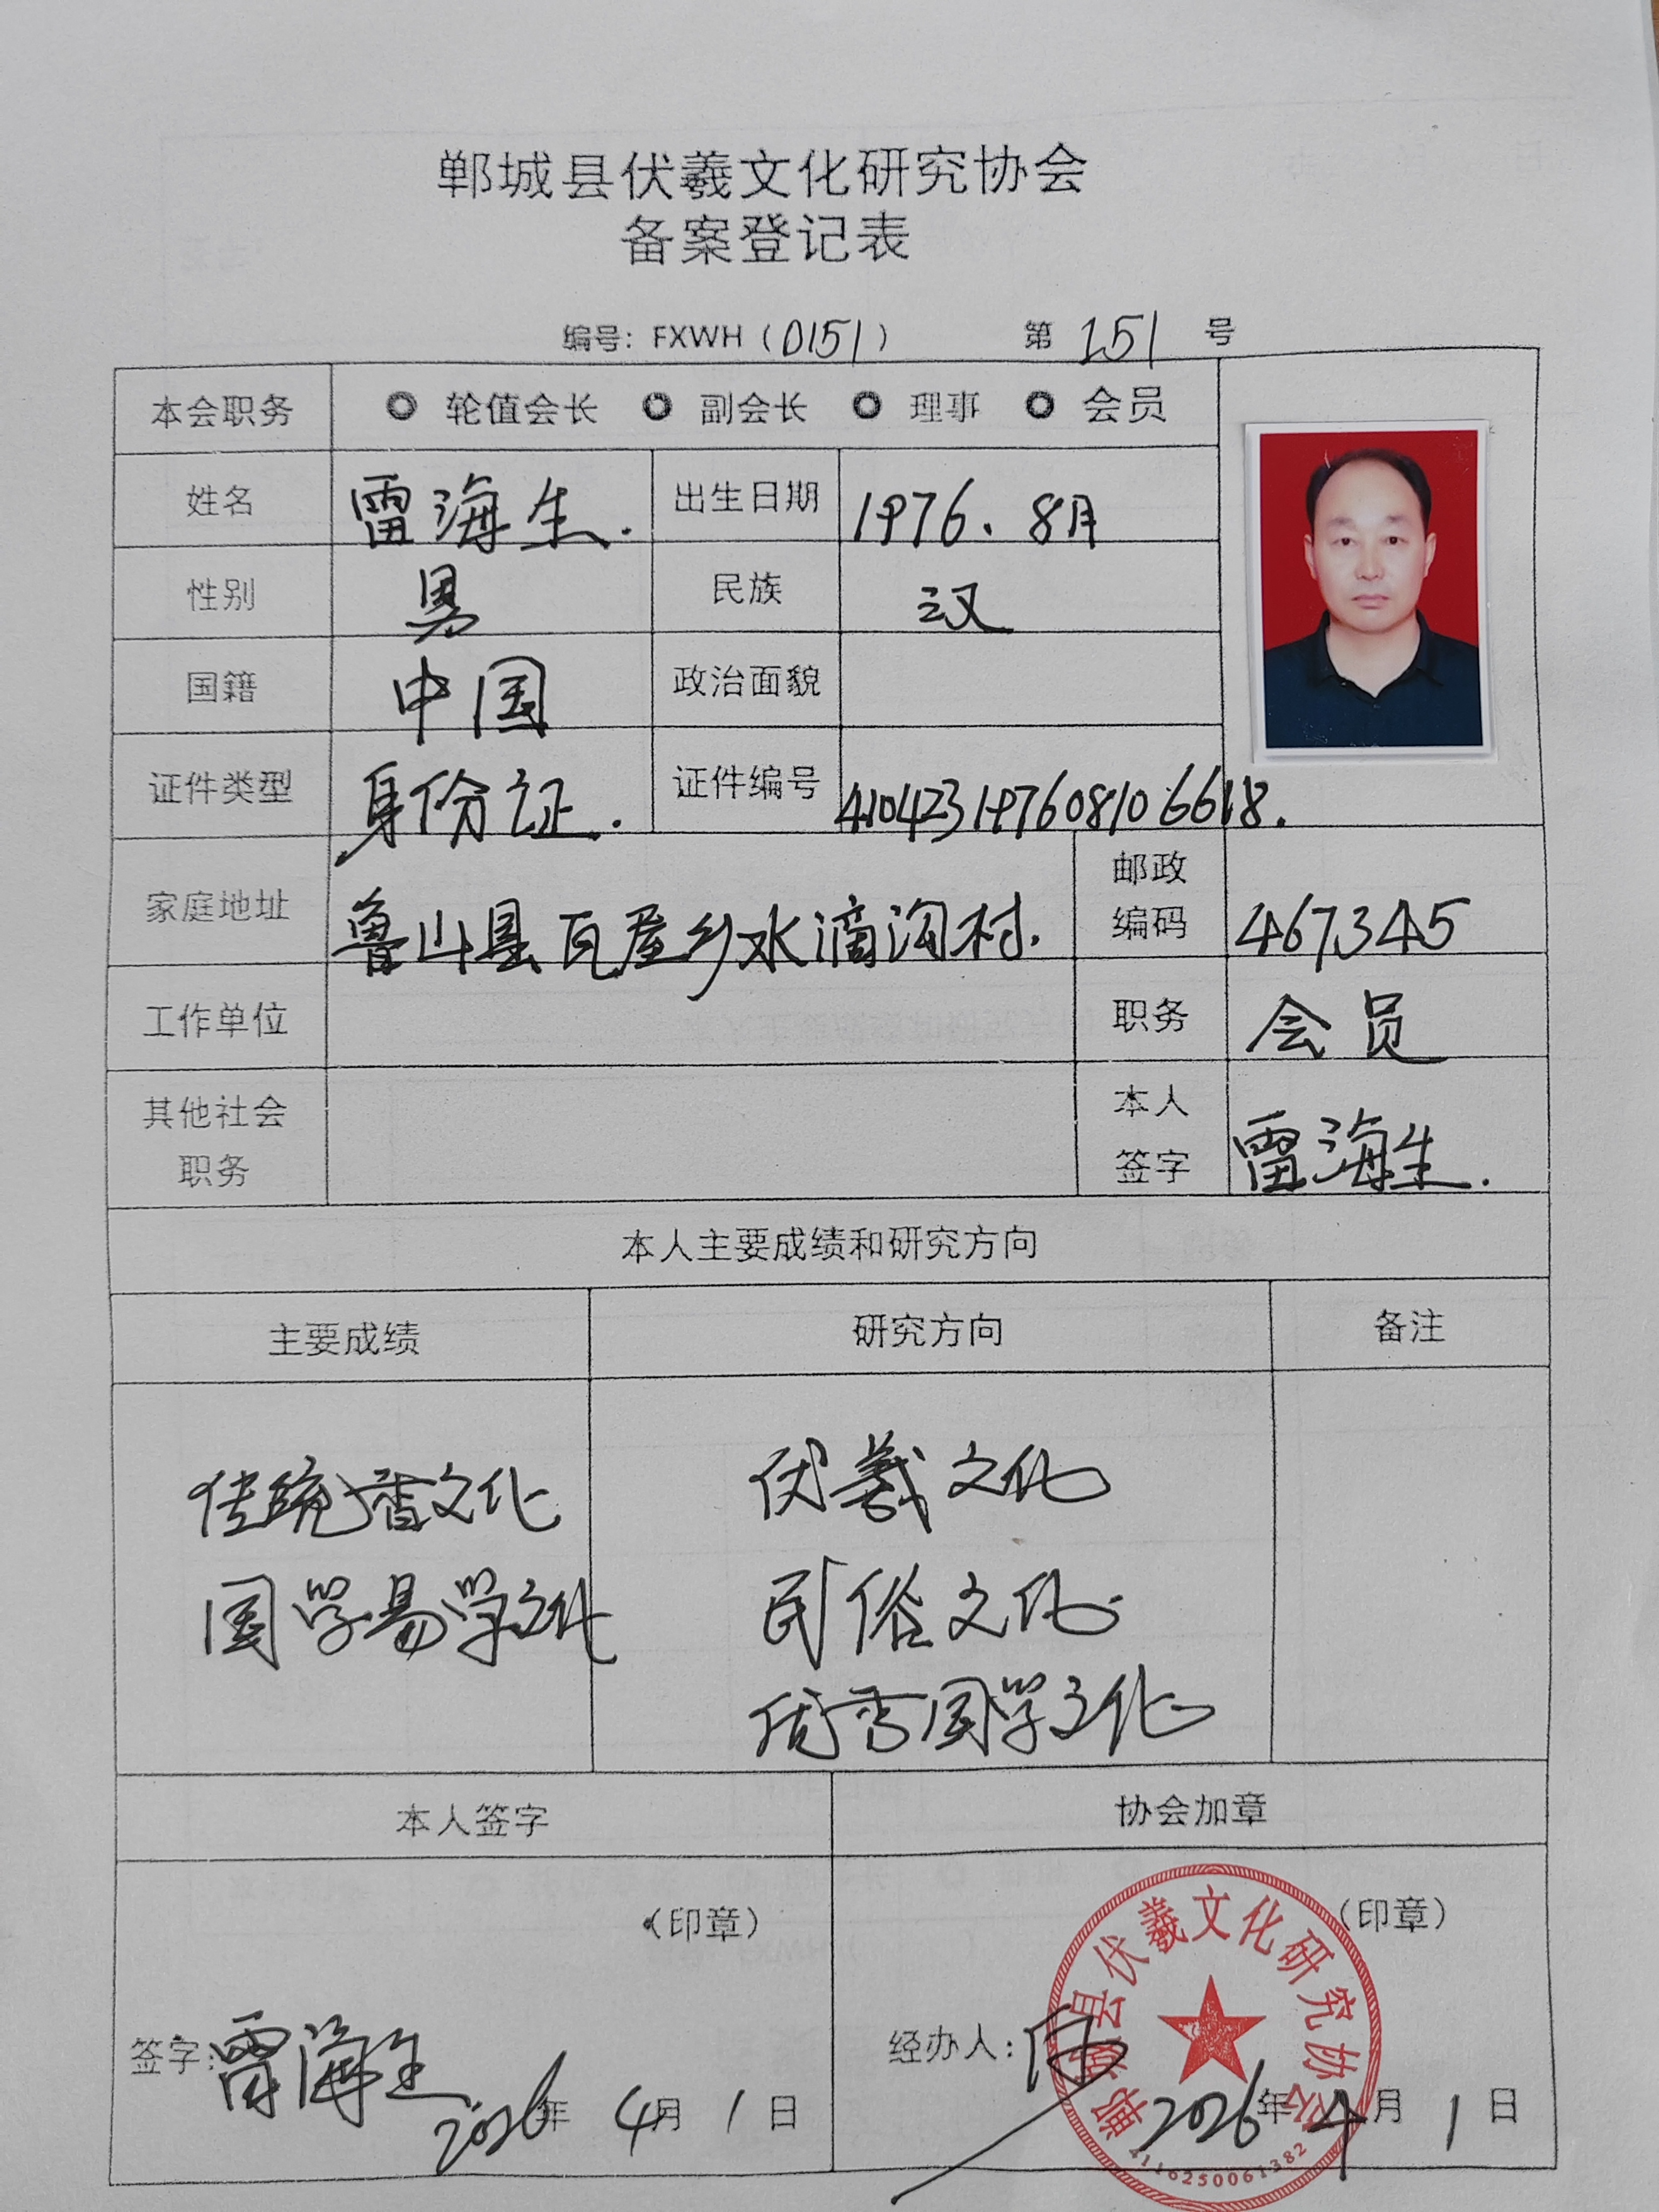 郸城县伏羲文化研究协会
备案登记表
编号：FXWH（0151） 第 151 号
本会职务 轮值会长 副会长 理事 会员
姓名 雷海生. 出生日期 1976、8月
性别 男 民族 汉
国籍 中国 政治面貌
证件类型 身份证. 证件编号 410423197608106618.
家庭地址 鲁山县瓦屋乡水滴沟村. 邮政编码 467345
工作单位 职务 会员
其他社会职务 本人签字 雷海生.
本人主要成绩和研究方向
主要成绩 研究方向 备注
传统香文化 伏羲文化
国学易学文化 民俗文化
优秀国学文化
本人签字 协会加章
（印章） （印章）
签字：雷海生 经办人：
2026年 4月 1日 2026年 4月 1日
郸城县伏羲文化研究协会
4116250061382